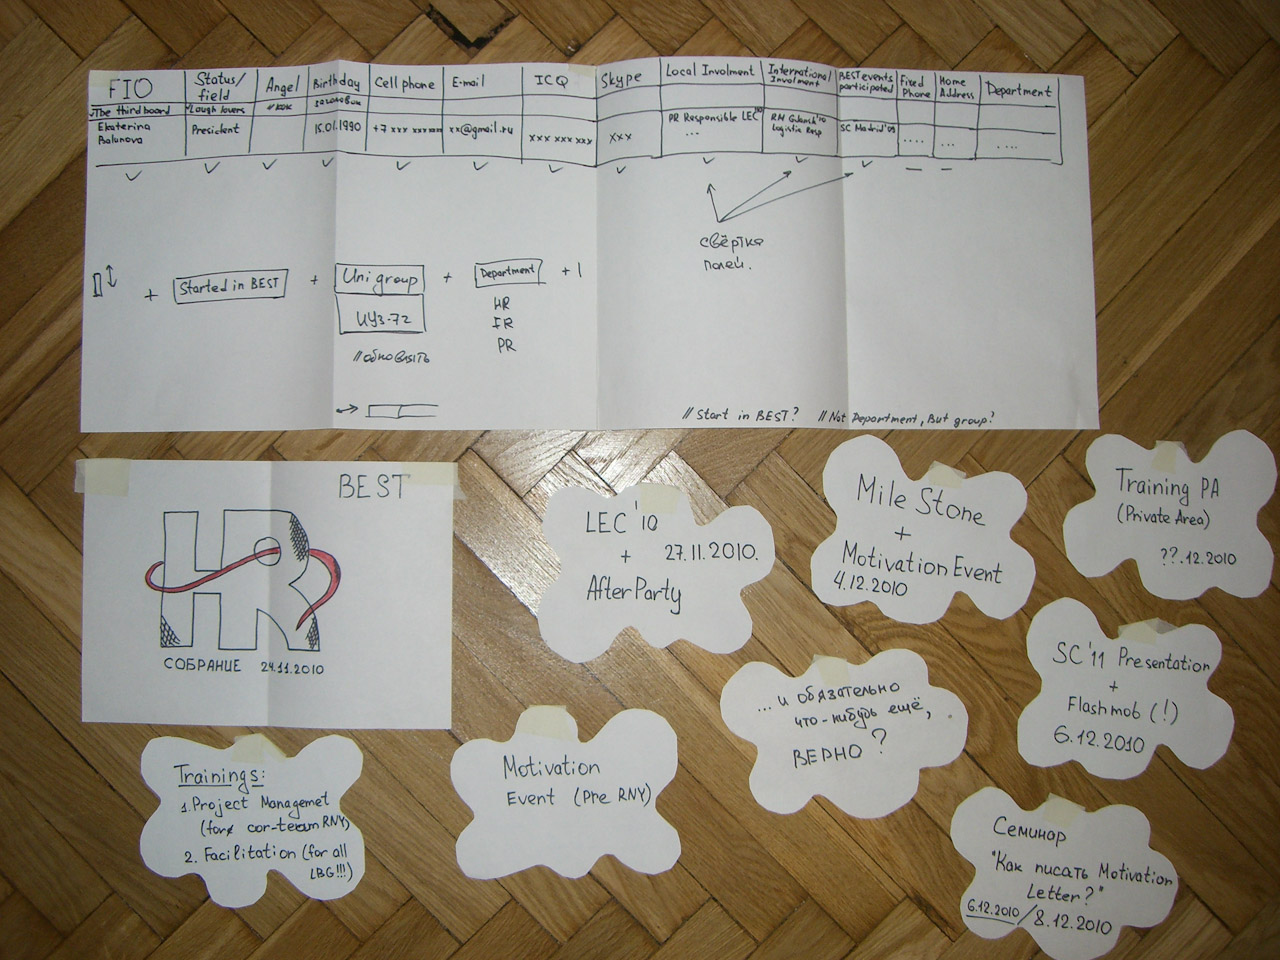 FIO Status/field Angel Birthday Cell phone E-mail ICQ Skype Local Involment International Involment BEST events participated Fixed Phone Home Address Department
The third board Laugh lovers // как заголовки
Ekaterina Balunova President 15.01.1990 +7 xxx xxxxxx xx@gmail.ru xxx xxx xxx xxx PR Responsible LEC'10 ... RM Gdansk'10 Logistic Resp SC Madrid'09 .... ... ....
свёртка
полей.
+ Started in BEST + Uni group + Department +1
ИУЗ-72
HR
IR
PR
// обновлять
// Start in BEST? // Not Department, But group?
BEST
HR
СОБРАНИЕ 24.11.2010
LEC'10
+ 27.11.2010.
AfterParty
Mile Stone
+
Motivation Event
4.12.2010
Training PA
(Private Area)
??.12.2010
SC'11 Presentation
+
Flashmob (!)
6.12.2010
... и обязательно
что-нибудь ещё,
ВЕРНО?
Trainings:
1. Project Managemet
(for cor-team RNY)
2. Facilitation (for all
LBG!!!)
Motivation
Event (Pre RNY)
Семинар
"Как писать Motivation
Letter?"
6.12.2010/8.12.2010